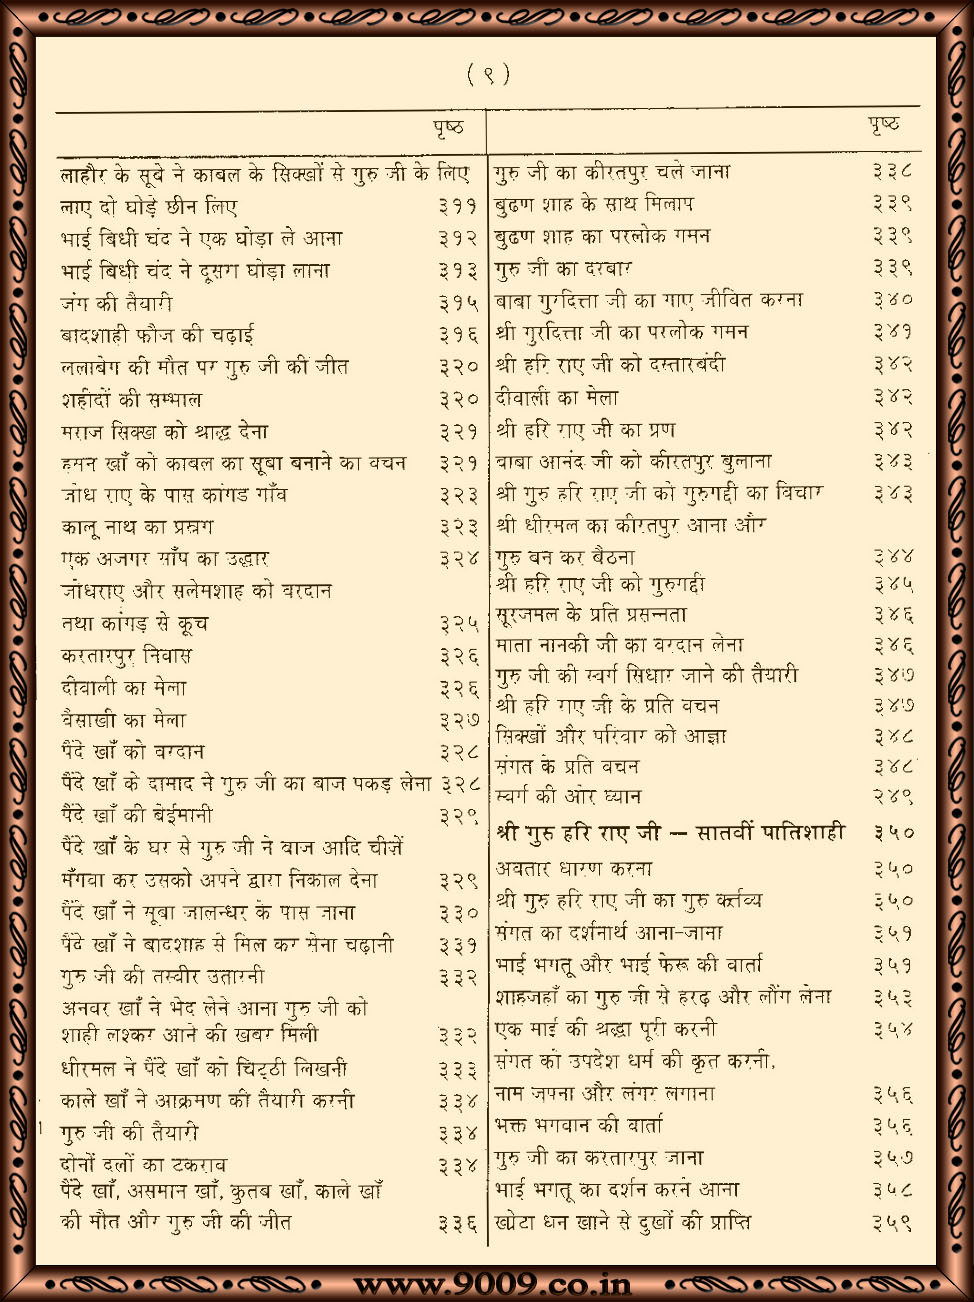 ( ९ )
पृष्ठ
लाहौर के सूबे ने काबल के सिक्खों से गुरु जी के लिए
लाए दो घोड़े छीन लिए ३११
भाई बिधी चंद ने एक घोड़ा ले आना ३१२
भाई बिधी चंद ने दूसरा घोड़ा लाना ३१३
जंग की तैयारी ३१५
बादशाही फौज की चढ़ाई ३१६
ललाबेग की मौत पर गुरु जी की जीत ३२०
शहीदों की सम्भाल ३२०
मराज सिक्ख को श्राद्ध देना ३२१
हमन खाँ को काबल का सूबा बनाने का वचन ३२१
जोध राए के पास कांगड गाँव ३२३
कालू नाथ का प्रस्नग ३२३
एक अजगर साँप का उद्धार ३२४
जोधराए और सलेमशाह को वरदान
तथा कांगड़ से कूच ३२५
करतारपुर निवास ३२६
दीवाली का मेला ३२६
वैसाखी का मेला ३२७
पैंदे खाँ को वरदान ३२८
पैंदे खाँ के दामाद ने गुरु जी का बाज पकड़ लेना ३२८
पैंदे खाँ की बेईमानी ३२९
पैंदे खाँ के घर से गुरु जी ने बाज आदि चीज़ें
मँगवा कर उसको अपने द्वारा निकाल देना ३२९
पैंदे खाँ ने सूबा जालन्धर के पास जाना ३३०
पैंदे खाँ ने बादशाह से मिल कर सेना चढ़ानी ३३१
गुरु जी की तस्वीर उतारनी ३३२
अनवर खाँ ने भेद लेने आना गुरु जी को
शाही लश्कर आने की खबर मिली ३३२
धीरमल ने पैंदे खाँ को चिट्ठी लिखनी ३३३
काले खाँ ने आक्रमण की तैयारी करनी ३३४
गुरु जी की तैयारी ३३४
दोनों दलों का टकराव ३३४
पैंदे खाँ, असमान खाँ, कुतब खाँ, काले खाँ
की मौत और गुरु जी की जीत ३३६
पृष्ठ
गुरु जी का कीरतपुर चले जाना ३३८
बुढण शाह के साथ मिलाप ३३९
बुढण शाह का परलोक गमन ३३९
गुरु जी का दरबार ३३९
बाबा गुरदित्ता जी का गाए जीवित करना ३४०
श्री गुरदित्ता जी का परलोक गमन ३४१
श्री हरि राए जी को दस्तारबंदी ३४२
दीवाली का मेला ३४२
श्री हरि राए जी का प्रण ३४२
बाबा आनंद जी को कीरतपुर बुलाना ३४३
श्री गुरु हरि राए जी को गुरुगद्दी का विचार ३४३
श्री धीरमल का कीरतपुर आना और
गुरु बन कर बैठना ३४४
श्री हरि राए जी को गुरुगद्दी ३४५
सूरजमल के प्रति प्रसन्नता ३४६
माता नानकी जी का वरदान लेना ३४६
गुरु जी की स्वर्ग सिधार जाने की तैयारी ३४७
श्री हरि राए जी के प्रति वचन ३४७
सिक्खों और परिवार को आज्ञा ३४८
संगत के प्रति वचन ३४८
स्वर्ग की ओर ध्यान २४९
श्री गुरु हरि राए जी — सातवीं पातिशाही ३५०
अवतार धारण करना ३५०
श्री गुरु हरि राए जी का गुरु कर्त्तव्य ३५०
संगत का दर्शनार्थ आना-जाना ३५१
भाई भगतू और भाई फेरू की वार्ता ३५१
शाहजहाँ का गुरु जी से हरढ़ और लौंग लेना ३५३
एक माई की श्रद्धा पूरी करनी ३५४
संगत को उपदेश धर्म की कृत करनी,
नाम जपना और लंगर लगाना ३५६
भक्त भगवान की वार्ता ३५६
गुरु जी का करतारपुर जाना ३५७
भाई भगतू का दर्शन करने आना ३५८
खोटा धन खाने से दुखों की प्राप्ति ३५९
www.9009.co.in